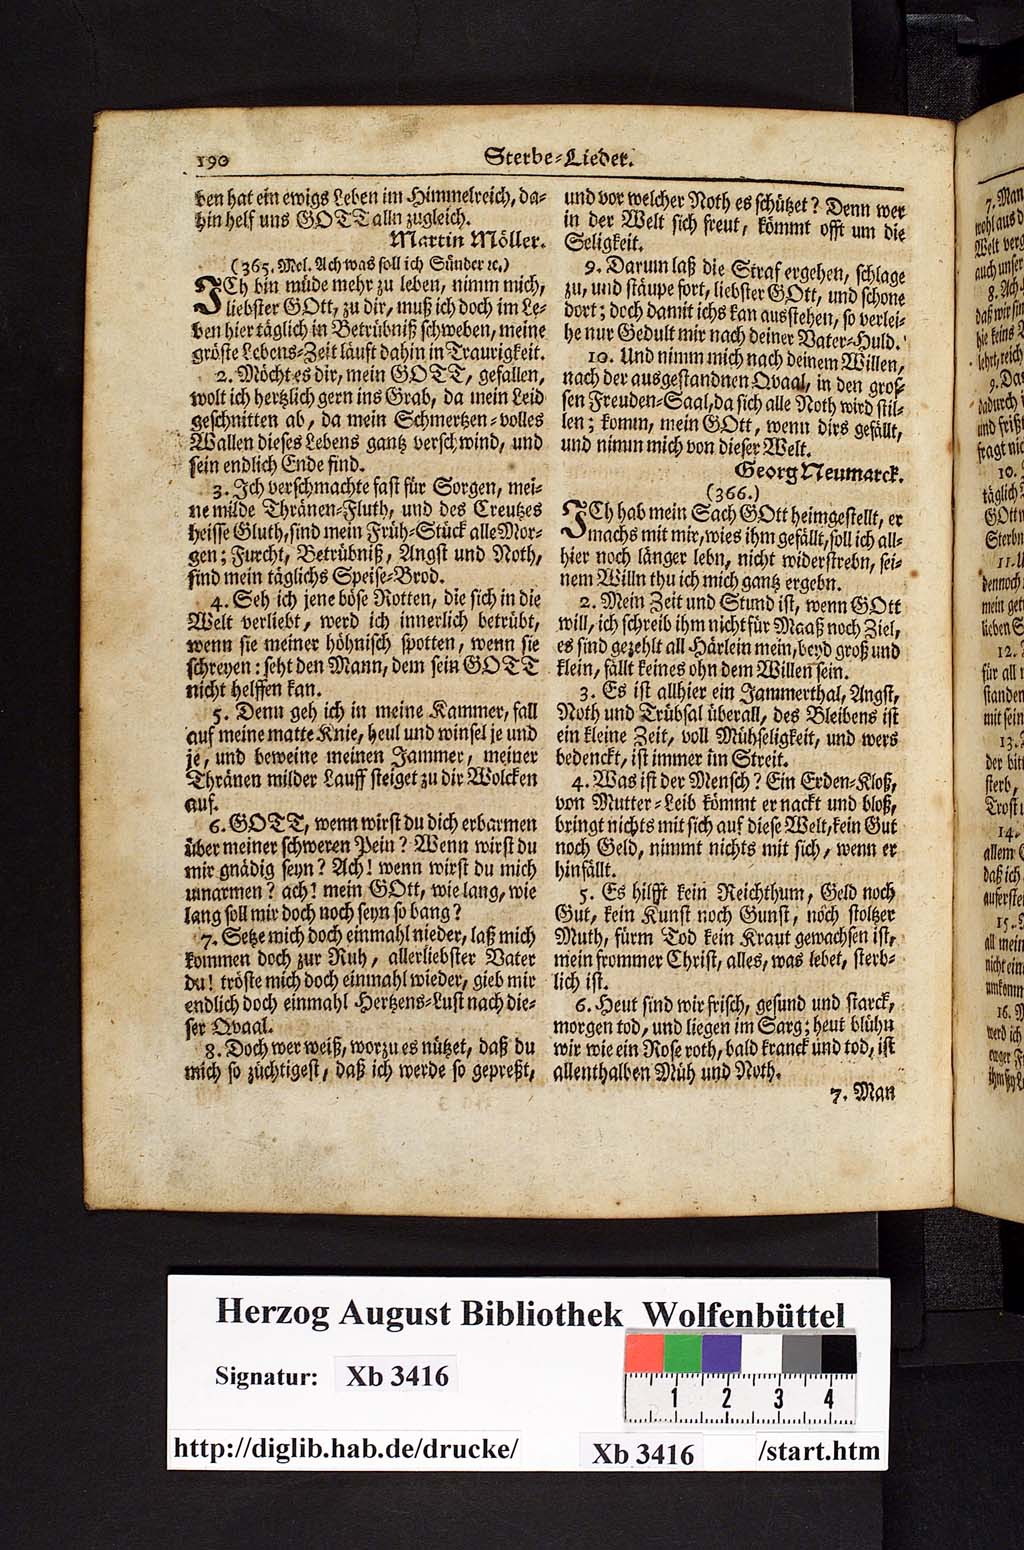 190
Sterbe-Lieder.
ben hat ein ewigs Leben im Himmelreich, da-
hin helf uns GOTT alln zugleich.
Martin Möller.
(365. Mel. Ach was soll ich Sünder ꝛc.)
JCh bin müde mehr zu leben, nimm mich,
liebster GOtt, zu dir, muß ich doch im Le-
ben hier täglich in Betrübniß schweben, meine
gröste Lebens-Zeit läuft dahin in Traurigkeit.
2. Möcht es dir, mein GOTT, gefallen,
wolt ich hertzlich gern ins Grab, da mein Leid
geschnitten ab, da mein Schmertzen-volles
Wallen dieses Lebens gantz verschwind, und
sein endlich Ende find.
3. Ich verschmachte fast für Sorgen, mei-
ne milde Thränen-Fluth, und des Creutzes
heisse Gluth, sind mein Früh-Stück alle Mor-
gen; Furcht, Betrübniß, Angst und Noth,
sind mein täglichs Speise-Brod.
4. Seh ich jene böse Rotten, die sich in die
Welt verliebt, werd ich innerlich betrübt,
wenn sie meiner höhnisch spotten, wenn sie
schreyen: seht den Mann, dem sein GOTT
nicht helffen kan.
5. Denn geh ich in meine Kammer, fall
auf meine matte Knie, heul und winsel je und
je, und beweine meinen Jammer, meiner
Thränen milder Lauff steiget zu dir Wolcken
auf.
6. GOTT, wenn wirst du dich erbarmen
über meiner schweren Pein? Wenn wirst du
mir gnädig seyn? Ach! wenn wirst du mich
umarmen? ach! mein GOtt, wie lang, wie
lang soll mir doch noch seyn so bang?
7. Setze mich doch einmahl nieder, laß mich
kommen doch zur Ruh, allerliebster Vater
du! tröste mich doch einmahl wieder, gieb mir
endlich doch einmahl Hertzens-Lust nach die-
ser Qvaal.
8. Doch wer weiß, worzu es nützet, daß du
mich so züchtigest, daß ich werde so gepreßt,
und vor welcher Noth es schützet? Denn wer
in der Welt sich freut, kömmt offt um die
Seligkeit.
9. Darum laß die Straf ergehen, schlage
zu, und stäupe fort, liebster GOtt, und schone
dort; doch damit ichs kan ausstehen, so verlei-
he nur Gedult mir nach deiner Vater-Huld.
10. Und nimm mich nach deinem Willen,
nach der ausgestandnen Qvaal, in den gros-
sen Freuden-Saal, da sich alle Noth wird stil-
len; komm, mein GOtt, wenn dirs gefällt,
und nimm mich von dieser Welt.
Georg Neumarck.
(366.)
JCh hab mein Sach GOtt heimgestellt, er
machs mit mir, wies ihm gefällt, soll ich all-
hier noch länger lebn, nicht widerstrebn, sei-
nem Willn thu ich mich gantz ergebn.
2. Mein Zeit und Stund ist, wenn GOtt
will, ich schreib ihm nicht für Maaß noch Ziel,
es sind gezehlt all Härlein mein, beyd groß und
klein, fällt keines ohn dem Willen sein.
3. Es ist allhier ein Jammerthal, Angst,
Noth und Trübsal überall, des Bleibens ist
ein kleine Zeit, voll Mühseligkeit, und wers
bedenckt, ist immer im Streit.
4. Was ist der Mensch? Ein Erden-Kloß,
von Mutter-Leib kömmt er nackt und bloß,
bringt nichts mit sich auf diese Welt, kein Gut
noch Geld, nimmt nichts mit sich, wenn er
hinfällt.
5. Es hilfft kein Reichthum, Geld noch
Gut, kein Kunst noch Gunst, noch stoltzer
Muth, fürm Tod kein Kraut gewachsen ist,
mein frommer Christ, alles, was lebet, sterb-
lich ist.
6. Heut sind wir frisch, gesund und starck,
morgen tod, und liegen im Sarg; heut blühn
wir wie ein Rose roth, bald kranck und tod, ist
allenthalben Müh und Noth.
7. Man
7. Man
wohl aus d
Welt verg
auch unser
8. Ach
daß wir sin
hie keins
lehrt, reich
9. Da
dadurch
und frißt
fragt nic
10.
täglich
GOtt
Sterbn
11. U
dennoch
mein get
lieben S
12.
für all
standen
mit sein
13.
der bitt
sterb,
Trost
14.
allem
daß ich
auferste
15.
all mein
nicht ein
umkomm
16. M
werd ich
ewger Fr
Herzog August Bibliothek Wolfenbüttel
Signatur: Xb 3416
1 2 3 4
http://diglib.hab.de/drucke/ Xb 3416 /start.htm